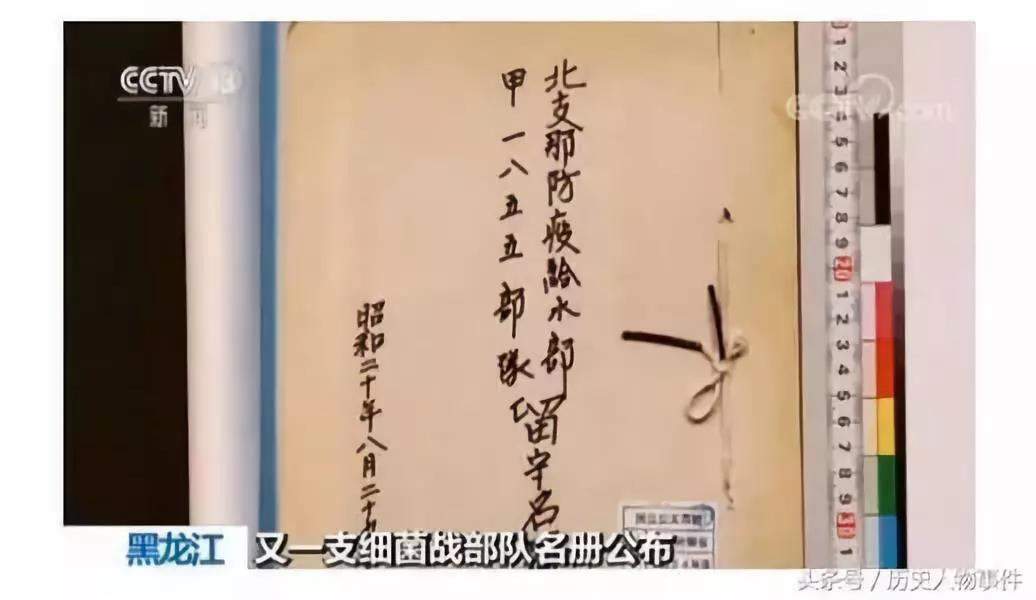 CCTV 13
新闻
CCTV.com
北支那防疫給水部
甲一八五五部隊
留守名
昭和二十年八月二十
1 2 3 4 5 6 7 8 9 20 1 2 3 4 5 6 7 8 9 30 1
黑龙江 又一支细菌战部队名册公布
头条号 / 历史人物事件